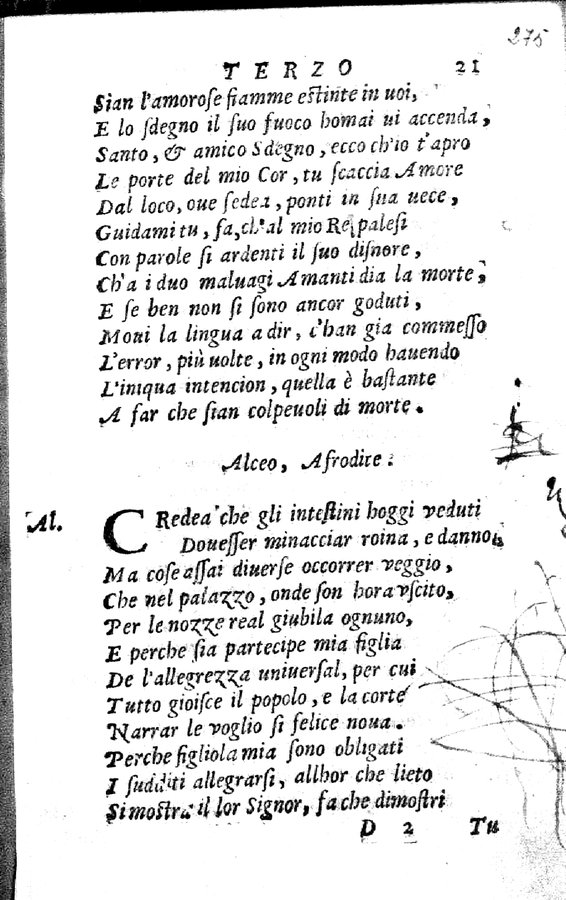 275
TERZO 21
Sian l'amoroſe fiamme eſtinte in uoi,
E lo ſdegno il ſuo fuoco homai ui accenda,
Santo, & amico Sdegno, ecco ch'io t'apro
Le porte del mio Cor, tu ſcaccia Amore
Dal loco, oue ſedea, ponti in ſua uece,
Guidami tu, fa, ch'al mio Re paleſi
Con parole ſi ardenti il ſuo diſnore,
Ch'a i duo maluagi Amanti dia la morte,
E ſe ben non ſi ſono ancor goduti,
Moui la lingua a dir, c'han gia commeſſo
L'error, più uolte, in ogni modo hauendo
L'iniqua intencion, quella è baſtante
A far che ſian colpeuoli di morte.
Alceo, Afrodite.
Al. CRedea che gli inteſtini hoggi veduti
Doueſſer minacciar roina, e danno,
Ma coſe aſſai diuerſe occorrer veggio,
Che nel palazzo, onde ſon hora vſcito,
Per le nozze real giubila ognuno,
E perche ſia partecipe mia figlia
De l'allegrezza uniuerſal, per cui
Tutto gioiſce il popolo, e la corte
Narrar le voglio ſi felice noua.
Perche figliola mia ſono obligati
I ſudditi allegrarſi, allhor che lieto
Si moſtra il lor Signor, fa che dimoſtri
D 2 Tu